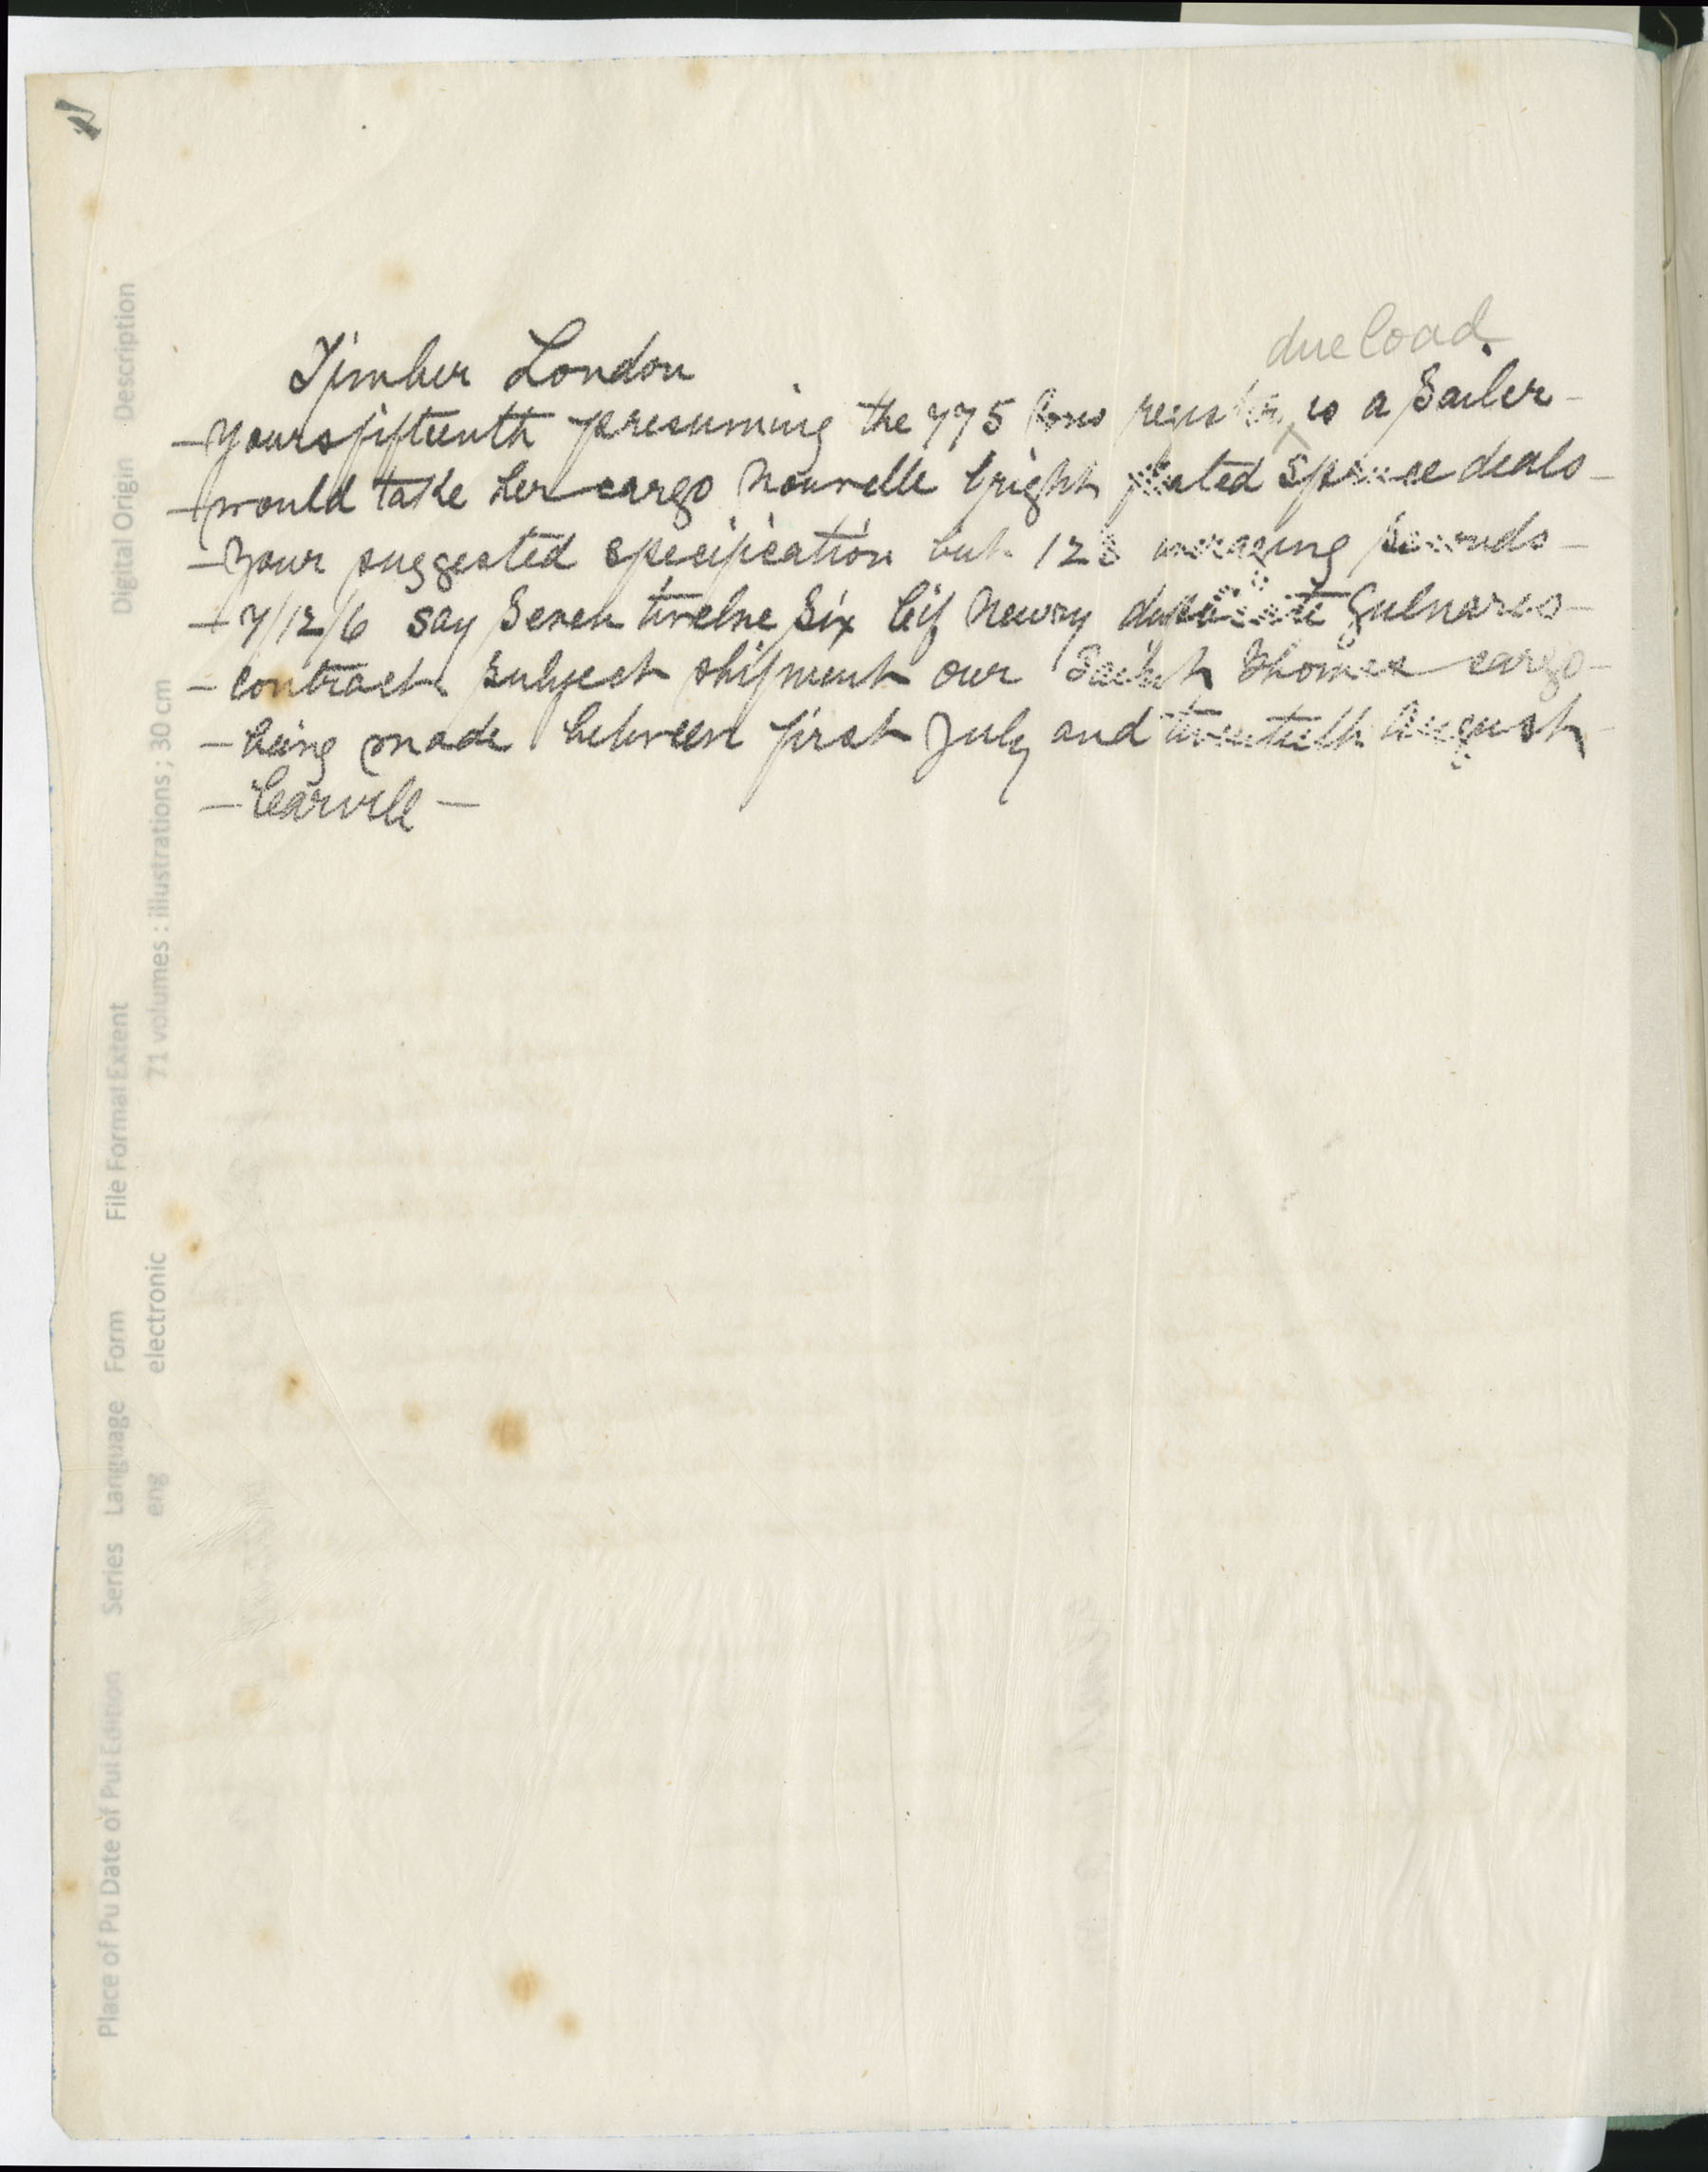 due load
Timber London
- Yours fifteenth presuming the 775 tons register is a Sailer -
- would take her cargo Nouvelle bright floated Spruce deals -
- Your suggested specification but 12s averaging Seconds -
- 7/12/6 say Seven twelve Six Cif Newry duplicate Gulnares -
- contract subject shipment our Saint Thomas cargo -
- being made between first July and twentieth August -
- Carvill -
Place of Pu Date of Pul Edition Series Language Form File Format Extent Digital Origin Description
eng electronic 71 volumes : illustrations ; 30 cm